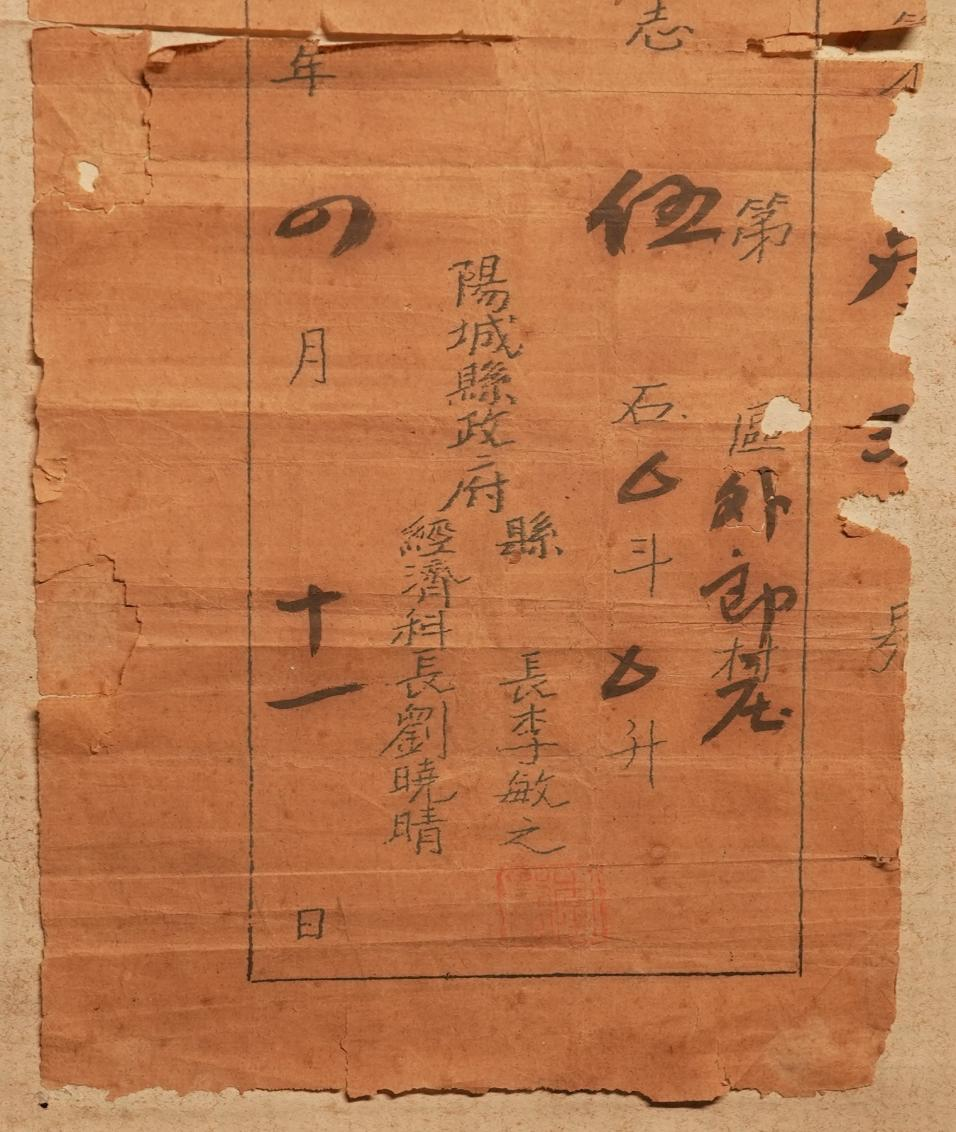 号
志
第伍區外郎村庄
石斗升
陽城縣政府
縣長李敏之
經濟科長劉曉晴
年四月十一日